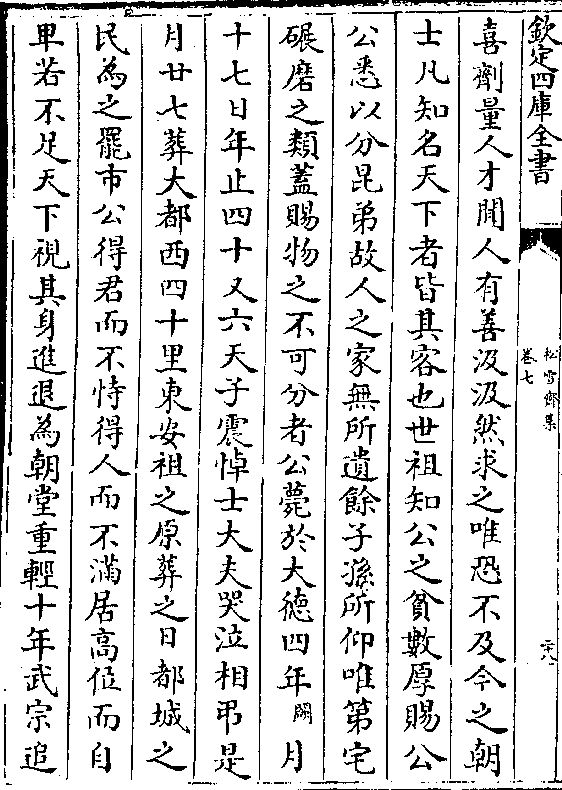 欽定四庫全書
松雪齋集
卷七
二十八
喜劑量人才聞人有善汲汲然求之唯恐不及今之朝
士凡知名天下者皆其客也世祖知公之貧數厚賜公
公悉以分昆弟故人之家無所遺餘子孫所仰唯第宅
碾磨之類蓋賜物之不可分者公薨於大德四年闕月
十七日年止四十又六天子震悼士大夫哭泣相弔是
月廿七葬大都西四十里東安祖之原葬之日都城之
民為之罷市公得君而不恃得人而不滿居高位而自
卑若不足天下視其身進退為朝堂重輕十年武宗追